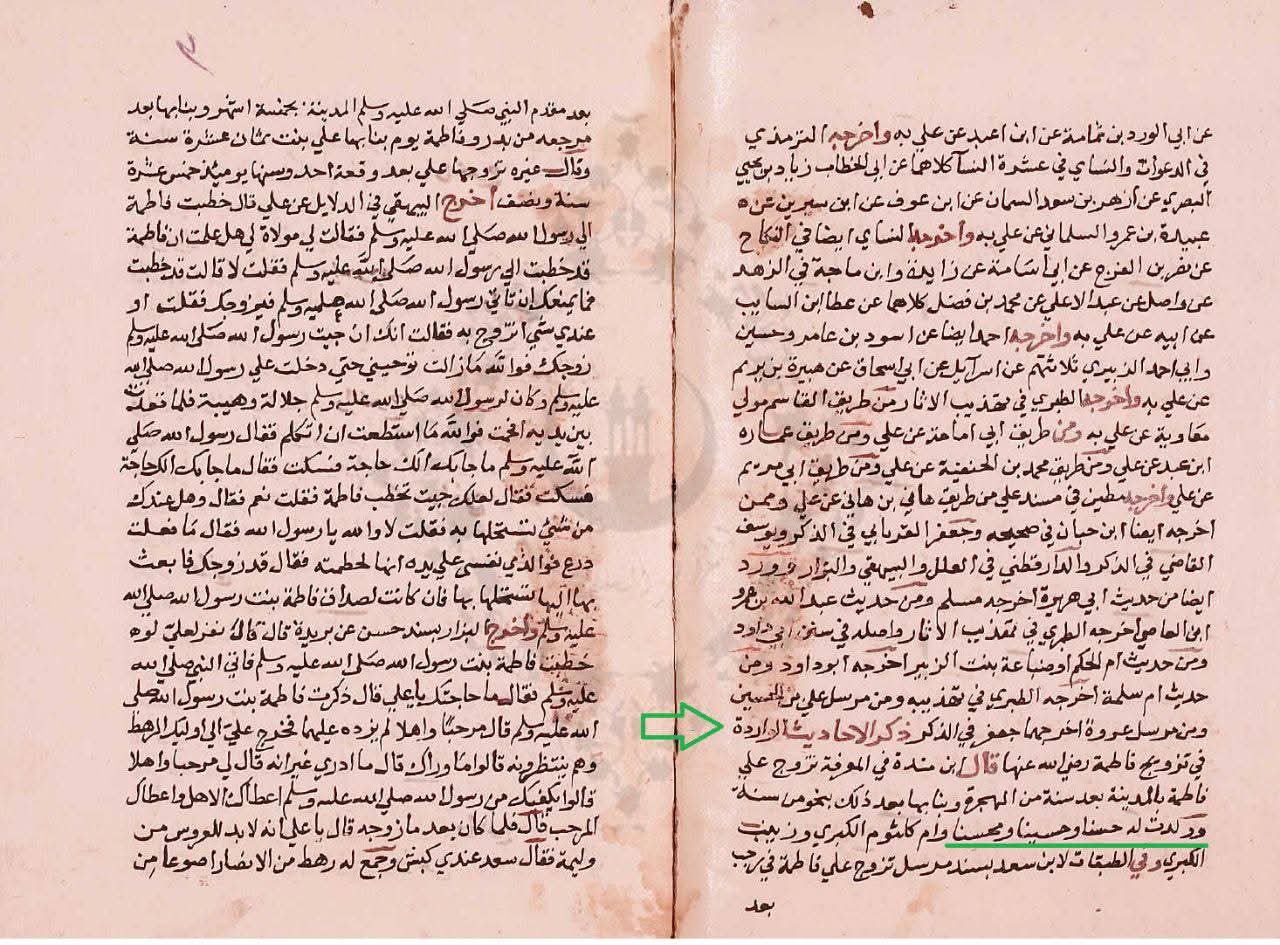 عن ابي الورد بن ثمامة عن ابن اعبد عن علي به واخرجه الترمذي
في الدعوات والنساي في عشرة النسا كلاهما عن ابي الخطاب زياد بن يحيي
البصري عن ازهر بن سعد السمان عن ابن عوف عن ابن سيرين عن
عبيدة بن عمرو السلماني عن علي به واخرجه النساي ايضا في النكاح
عن نصر بن الفرج عن ابي اسامة عن زايدة وابن ماجة في الزهد
عن واصل عن عبد الاعلي عن محمد بن فضل كلاهما عن عطا ابن السايب
عن ابيه عن علي به واخرجه احمد ايضا عن اسود بن عامر وحسين
وابي احمد الزبيري ثلاثتهم عن اسرآيل عن ابي اسحاق عن هبيرة بن يريم
عن علي به واخرجه الطبري في تهذيب الاثار من طريق القاسم مولي
معاوية عن علي به ومن طريق ابي امامة عن علي ومن طريق عماره
ابن عبد عن علي ومن طريق محمد بن الحنفية عن علي ومن طريق ابي مريم
عن علي واخرجه مطين في مسند علي من طريق هاني بن هاني عن علي وممن
اخرجه ايضا ابن حبان في صحيحه وجعفر الفريابي في الذكر ويوسف
القاضي في الذكر والدارقطني في العلل والبيهقي والبزار وورد
ايضا من حديث ابي هريرة اخرجه مسلم ومن حديث عبد الله بن عمرو
ابن العاصي اخرجه الطبري في تهذيب الاثار واصله في سنن ابي داود
ومن حديث ام الحكم او ضباعة بنت الزبير اخرجه ابو داود ومن
حديث ام سلمة اخرجه الطبري في تهذيبه ومن مرسل علي بن الحسين
ومن مرسل عروة اخرجهما جعفر في الذكر ذكر الاحاديث الواردة
في تزويج فاطمة رضي الله عنها قال ابن مندة في المعرفة تزوج علي
فاطمة بالمدينة بعد سنة من الهجرة وبنا بها بعد ذلك بنحو من سنة
وولدت له حسنا وحسينا ومحسنا وام كلثوم الكبري وزينب
الكبري وفي الطبقات لابن سعد بسند مرسل تزوج علي فاطمة في رجب
بعد
بعد مقدم النبي صلي الله عليه وسلم المدينة بخمسة اشهر وبنا بها بعد
مرجعه من بدر وفاطمة يوم بنا بها علي بنت ثمان عشرة سنة
وقال غيره تزوجها علي بعد وقعة احد وسنها يوميذ خمس عشرة
سنة ونصف اخرج البيهقي في الدلايل عن علي قال خطبت فاطمة
الي رسول الله صلي الله عليه وسلم فقالت لي مولاة لي هل علمت ان فاطمة
قد خطبت الي رسول الله صلي الله عليه وسلم فقلت لا قالت قد خطبت
فما يمنعك ان تاتي رسول الله صلي الله عليه وسلم فيزوجك فقلت او
عندي شي اتزوج به فقالت انك ان جيت رسول الله صلي الله عليه وسلم
زوجك فوالله ما زالت ترجيني حتي دخلت علي رسول الله صلي الله
عليه وسلم وكان لرسول الله صلي الله عليه وسلم جلالة وهيبة فلما قعدت
بين يديه افحمت فوالله ما استطعت ان اتكلم فقال رسول الله صلي
الله عليه وسلم ما جا بك الك حاجة فسكت فقال ما جا بك الك حاجة
فسكت فقال لعلك جيت تخطب فاطمة فقلت نعم فقال وهل عندك
من شي تستحلها به فقلت لا والله يا رسول الله فقال ما فعلت
درع فوالذي نفسي علي بيده انها لحطمته فقال قد زوجك فابعث
بها اليها تستحلها بها فان كانت لصداق فاطمة بنت رسول الله صلي الله
عليه وسلم واخرج البزار بسند حسن عن بريدة قال قال نفر لعلي لو
خطبت فاطمة بنت رسول الله صلي الله عليه وسلم فاتي النبي صلي الله
عليه وسلم فقال ما حاجتك يا علي قال ذكرت فاطمة بنت رسول الله صلي
الله عليه وسلم قال مرحبا واهلا لم يزده عليهما فخرج علي الي اوليك الرهط
وهم ينتظرونه قالوا ما وراك قال ما ادري غير انه قال لي مرحبا واهلا
قالوا يكفيك من رسول الله صلي الله عليه وسلم اعطاك الاهل واعطاك
المرحب قال فلما كان بعد ما زوجه قال يا علي انه لا بد للعروس من
وليمة فقال سعد عندي كبش وجمع له رهط من الانصار اصوعا من